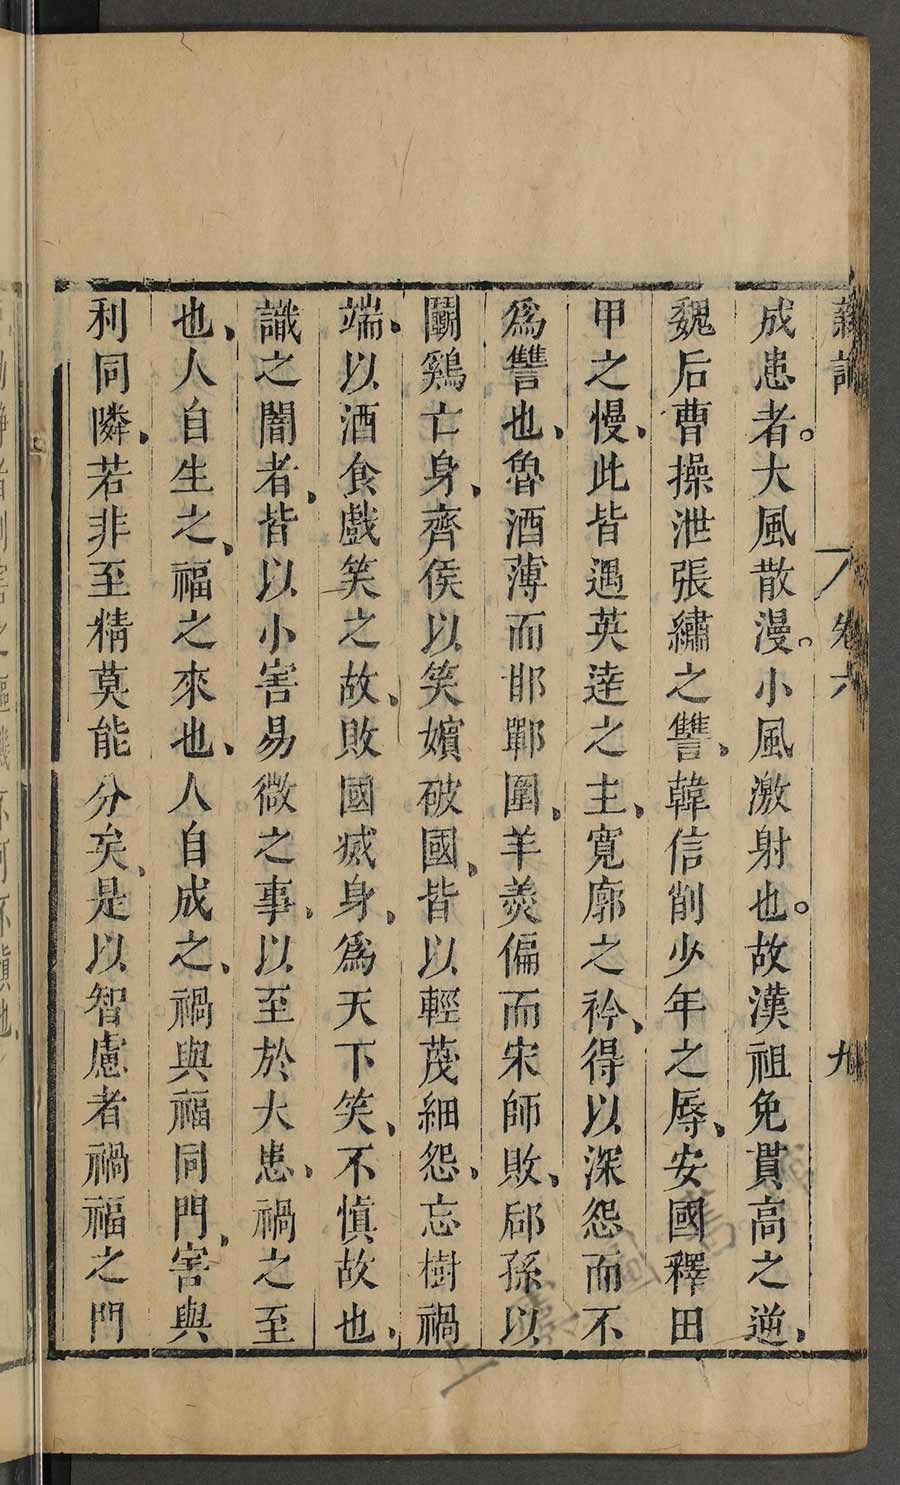 新論 卷六 九
成患者。大風散漫。小風激射也。故漢祖免貫高之逆、
魏后曹操泄張繡之讐、韓信削少年之辱、安國釋田
甲之慢、此皆遇英逹之主、寬廓之衿、得以深怨而不
爲讐也、魯酒薄而邯鄲圍、羊羮偏而宋師敗、郈孫以
鬭鷄亡身、齊侯以笑嬪破國、皆以輕蔑細怨、忘樹禍
端、以酒食戲笑之故、敗國烕身、爲天下笑、不慎故也、
識之闇者、皆以小害易微之事、以至於大患、禍之至
也、人自生之、福之來也、人自成之、禍與福同門、害與
利同隣、若非至精莫能分矣、是以智慮者禍福之門